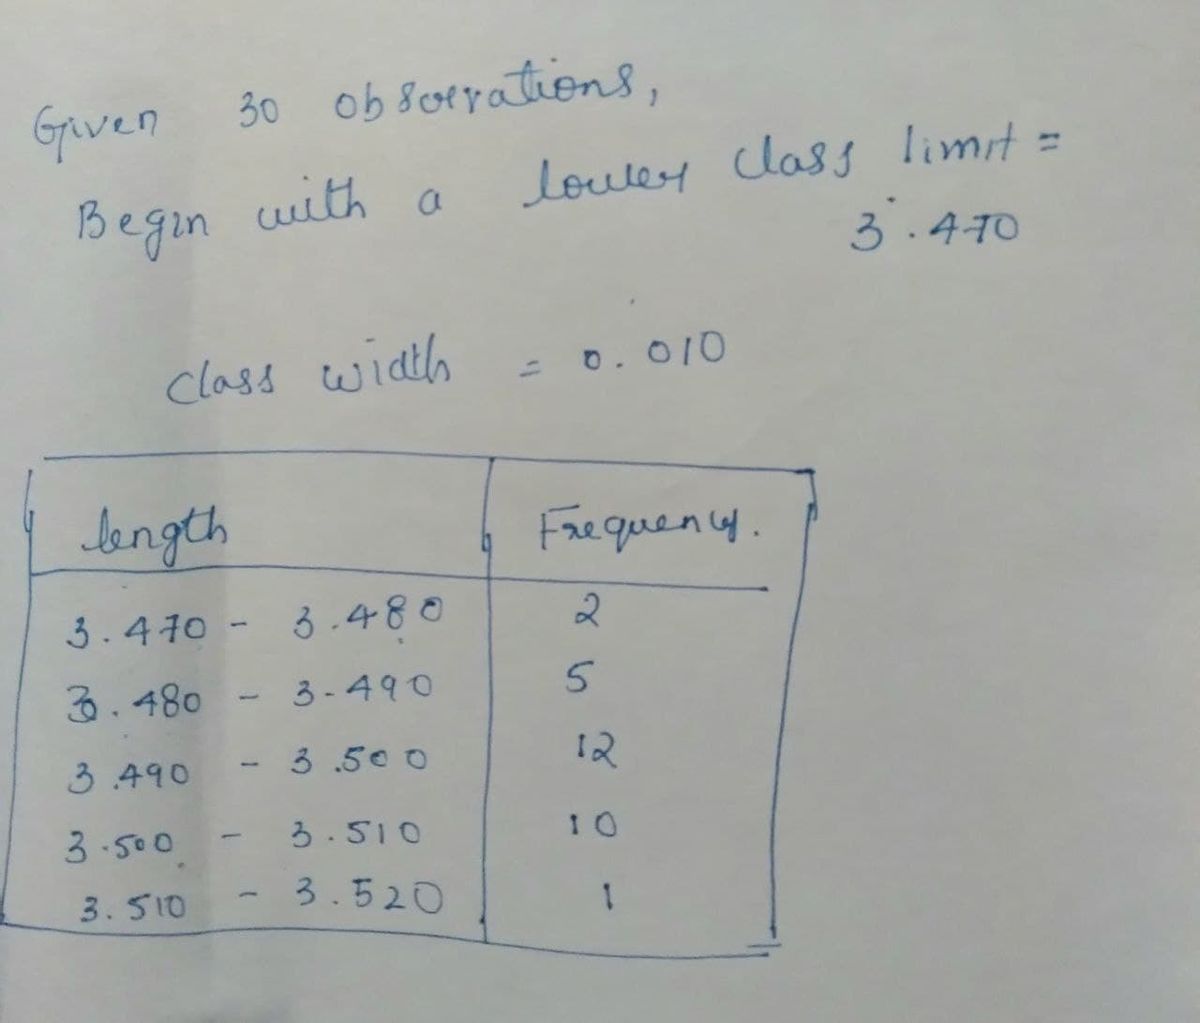 Given 30 observations,
Begin with a lower class limit =
3.470
class width = 0.010
length Frequency.
3.470 - 3.480 2
3.480 - 3.490 5
3.490 - 3.500 12
3.500 - 3.510 10
3.510 - 3.520 1